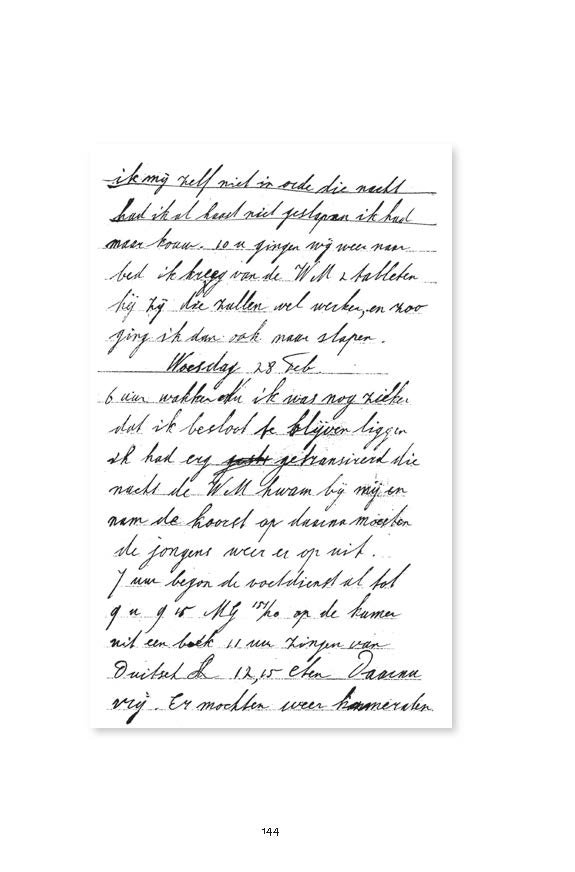 ik mij zelf niet in orde die nacht
had ik al haast niet geslapen ik had
maar kouw. 10 u gingen wij weer naar
bed ik kreeg van de WM 2 tabletten
hij zij die zullen wel werken, en zoo
ging ik dan ook naar slapen.
Woesdag 28 Feb.
6 uur wakker nu ik was nog zieker
dat ik besloot te blijven liggen
ik had erg getransireerd die
nacht de WM kwam bij mij en
nam de koorst op daarna moesten
de jongens weer er op uit.
7 uur begon de voetdienst al tot
9 u 9 15 MG 151/20 op de kamer
uit een boek 11 uur zingen van
Duitsch L 12,15 eten Daarna
vrij. Er mochten weer kammeraten
144